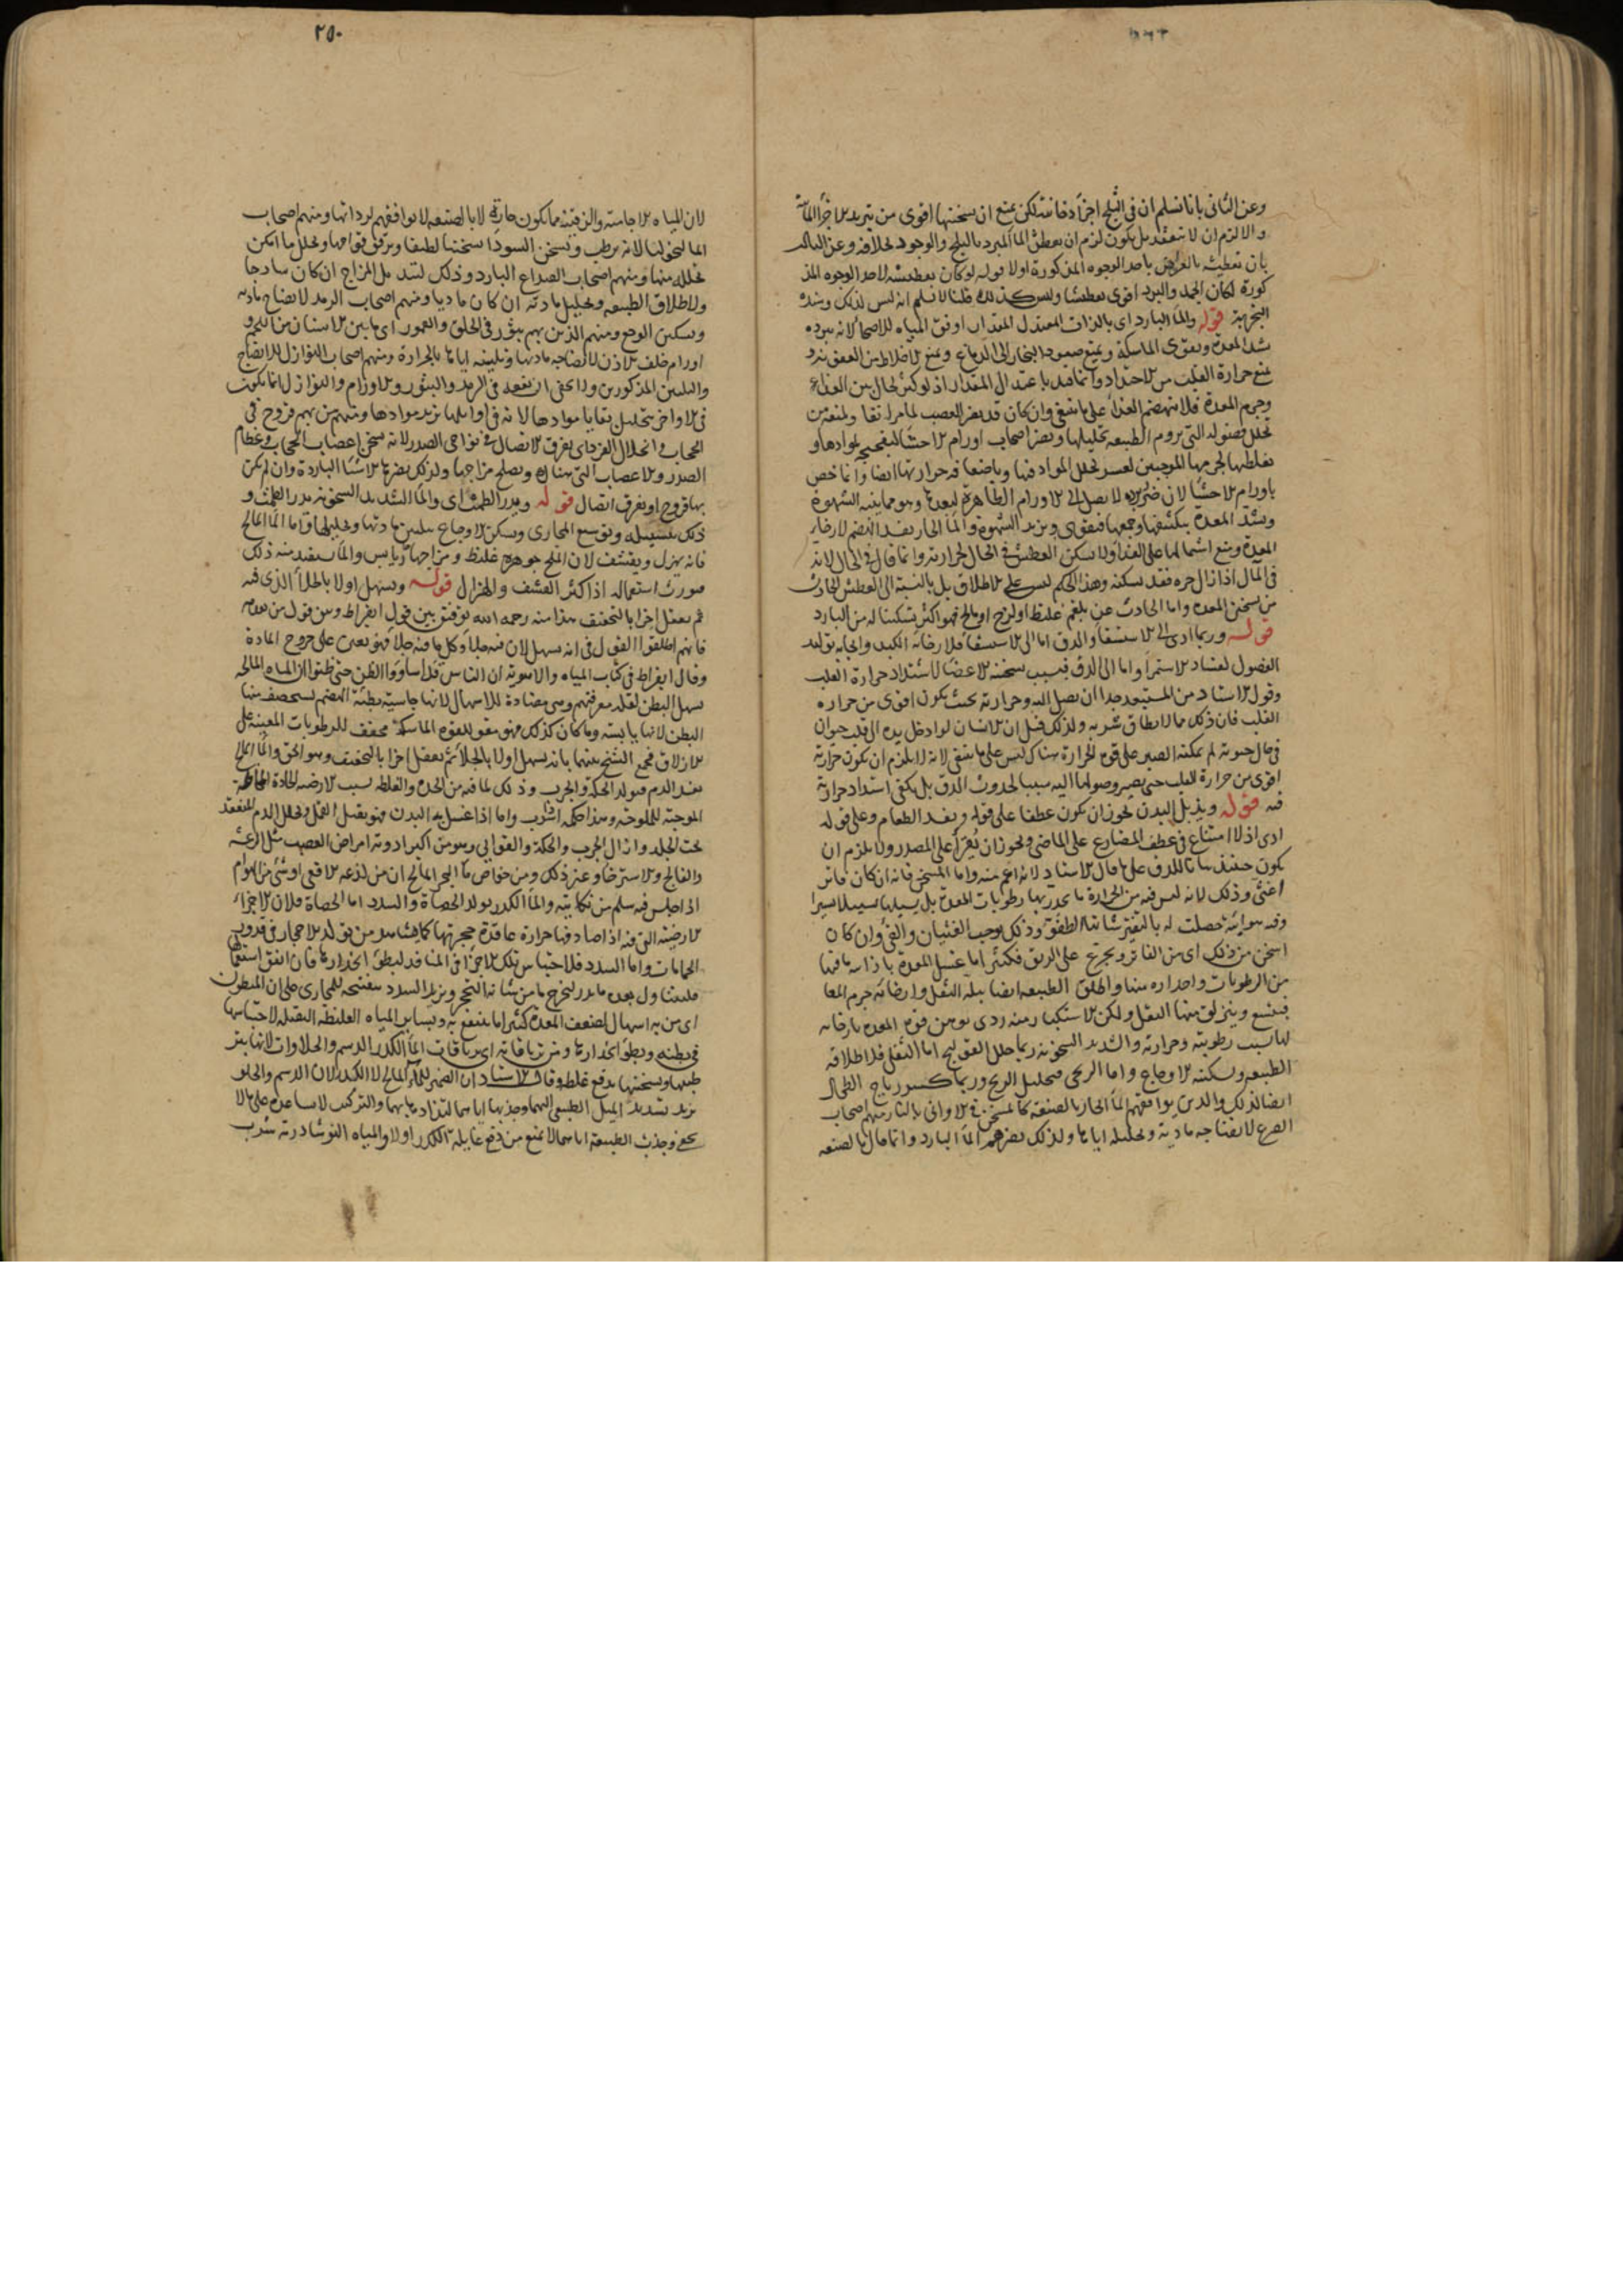 وعن الثانى بانا نسلم ان فى الثلج اجزأ دخانية لكن يمنع ان سخنتها اقوى من تبريد الاجزأ المائية
والا لزم ان لا ينعقد بل يكون لزم ان يعطش المأ المبرد بالثلج والوجود بخلافه وعن الثالث
بان تعطيشه بالعرض باحد الوجوه المذكورة اولا قوله لو كان تعطيشه لاحد الوجوه المذ
كورة لكان الجمد والبرد اقوى تعطيشا وليس كذلك قلنا لا نسلم انه ليس كذلك وسنده
التجربة قوله والمأ البارد اى بالذات المعتدل المقدار اوفق المياه للاصحأ لانه ببرده
يشد المعدة ويقوى الماسكة ويمنع صعود البخار الى الدماغ ويمنع الاخلاط من العفن
يمنع حرارة القلب من الاحتداد وانما قيد باعتدال المقدار اذ لو كثر لحال بين الغذاء
وجرم المعدة فلا ينهضم الغذأ على ما ينبغى وان كان قد يضر العصب لما مر انفا ولمنعه من
تحلل فضوله التى يروم الطبيعة تحليلها ويضر اصحاب اورام الاحشأ لتفجيجه لموادها و
تغليظها لجرمها الموجبين لعسر تحلل المواد فيها
باورام الاحشأ لان ضرر برده لا يصل الى الاورام الظاهرة لبعدها وهو مما ينبه الشهوة
ويشد المعدة بتكثيفها وجمعها فيقوى ويزيد الشهوة والمأ الحار يفسد الهضم لارخاء
المعدة ومنع اشتمالها على الغذأ ولا يسكن العطش فى الحال لحرارته وانما قال فى الحال لانه
فى المآل اذا زال حره فقد يسكنه وهذا الحكم ليس على الاطلاق بل بالنسبة الى العطش الحادث
من تسخن المعدة واما الحادث عن بلغم غليظ او لزج او مالح فهو اكثر تسكينا له من البارد
قوله وربما ادى الى الاستسقأ والدق اما الى الاستسقأ فلارخائه الكبد وايجابه توليد
الفضول لفساد الاستمرأ واما الى الدق فبسبب سخنة الاعضأ لاشتداد حرارة القلب
وقول الاستاد من المستبعد جدا ان يصل اليه وحرارته بحيث يكون اقوى من حرارة
القلب فان ذلك مما لا يطاق شربه ولذلك قيل ان الانسان لو ادخل يده الى قلب حيوان
فى حال حيوته لم يمكنه الصبر على قوة الحرارة هناك ليس على ما ينبغى لانه لا يلزم ان يكون حرارته
اقوى من حرارة القلب حتى يصير وصولها اليه سببا لحدوث الدق بل يكفى اشتداد حرارته
فيه قوله ويذبل البدن يجوز ان يكون عطفا على قوله ويفسد الطعام وعلى قوله
ادى اذ لا امتناع فى عطف المضارع على الماضى ويجوز ان يقرأ على المصدر ولا يلزم ان
يكون حينئذ بيانا للدق على ما قال الاستاد لانه اعم منه واما المسخن فانه ان كان فاترا
اغثى وذلك لانه ليس فيه من الحرارة ما يحدر بها رطوبات المعدة بل يسيلها سيلا يسيرا
وفيه هوائية حصلت له بالتفتير شانها الطفو وذلك يوجب الغثيان والقى وان كان
اسخن من ذلك اى من الفاتر وتجرع على الريق فكثيرا ما غسل المعدة باذابته ما فيها
من الرطوبات واحداره عنها واطلق الطبيعة ايضا ببله الثفل وارخائه جرم المعا
فيتسع وينزلق منها الثفل ولكن الاستكثار منه ردى يوهن قوة المعدة بارخائه
لها بسبب رطوبته وحرارته والشديد السخونة ربما حلل القولنج اما الثفلى فلاطلاقه
الطبيعة وتسكينه الاوجاع واما الريحى فبتحليل الريح وربما كسر رياح الطحال
ايضا لذلك والذين يوافقهم المأ الحار بالصنعة كما يسخن فى الاوانى بالنار منهم اصحاب
الصرع لانضاجه مادته وتحليله اياها ولذلك يضرهم المأ البارد وانما قال بالصنعة
٢٥٠
لان المياه الاجامية والزفتية مما يكون حارة لا بالصنعة لا يوافقهم لرداتها ومنهم اصحاب
المالنخوليا لانه يرطب ويسخن السودا سخنة لطيفا ويرقق قوامها وتحلل ما امكن
تحلله منها ومنهم اصحاب الصداع البارد وذلك لتبديل المزاج ان كان ساذجا
ولاطلاق الطبيعة وتحليل مادته ان كان ماديا ومنهم اصحاب الرمد لانضاج مادته
وتسكين الوجع ومنهم الذين بهم بثور فى الحلق والعمور اى ما بين الاسنان من اللحم و
اورام خلف الاذن لانضاجه مادتها وتليينه اياها بالحرارة ومنهم اصحاب النوازل للانضاج
والتليين المذكورين واعنى ان نفعه فى الرمد والبثور والاورام والنوازل انما يكون
فى الاواخر بتحليل بقايا موادها لانه فى اوايلها يزيد موادها ومنهم من بهم قروح فى
الحجاب وانحلال الفرد اى تفرق الاتصال فى نواحى الصدر لانه يسخن اعصاب الحجاب وعظام
الصدر والاعصاب التى هناك ويصلح مزاجها ولذلك يضرها الاشيأ الباردة وان لم يكن
بها قروح او تفرق اتصال قوله ويدر الطمث اى والمأ الشديد السخونة يدر الطمث و
ذلك بتسييله وتوسيع المجارى ويسكن الاوجاع بتليين مادتها وتحليلها واما المأ المالح
فانه يهزل ويقشف لان الملح جوهره غليظ ومزاجها يابس والمأ يستفيد منه ذلك
فيورث استعماله اذا كثر القشف والهزال قوله ويسهل اولا بالجلأ الذى فيه
ثم يعقل اخرا بالتجفيف هذا منه رحمه الله توفيق بين قول ابقراط ومن قول من بعده
فانهم اطلقوا القول فى انه يسهل لان فيه جلأ وكل ما فيه جلأ فهو يعين على خروج المادة
وقال ابقراط فى كتاب المياه والاهوية ان الناس قد اساووا الظن حتى ظنوا ان المياه المالحة
تسهل البطن لقلة معرفتهم وهى مضادة للاسهال لانها جاسية بطيئة الهضم يستحصف منها
البطن لانها يابسة وما كان كذلك فهو مقو للقوة الماسكة مجفف للرطوبات المعينة على
الازلاق فجمع الشيخ بينهما بانه يسهل اولا بالجلأ ثم يعقل اخرا بالتجفيف وهو الحق والمأ المالح
يفسد الدم فيولد الحكة والجرب وذلك لما فيه من الحدة والغلظ بسبب الارضية الحادة المخالطة
الموجبة للملوحة وهذا حكمه اذا شرب واما اذا غسل به البدن فهو يقتل القمل وتحلل الدم المنعقد
تحت الجلد وازال الجرب والحكة والقوابى وهو من اكبر ادوية امراض العصب مثل الرعشة
والفالج والاسترخأ وغير ذلك ومن خواص مأ البحر المالح ان من لذعه الافعى او شئ من الهوام
اذا جلس فيه سلم من نكايته والمأ الكدر يولد الحصاة والسدد اما الحصاة فلان الاجزاء
الارضية التى فيه اذا صادفها حرارة عاقدة حجرتها كما يشاهد من تولد الاحجار فى قدور
الحمامات واما السدد فلاحتباس تلك الاجزأ فى المنافذ لبطؤ انحدارها فان اتفق استعماله
فليتناول بعده ما يدر ليخرج ما من شأنه التحجر ويزيد السدد بتفتيحه للمجارى على ان المبطون
اى من به اسهال لضعف المعدة كثيرا ما ينتفع به وبساير المياه الغليظة الثقيلة لاحتباسها
فى بطنه وبطؤ انحدارها ومن ترياقاته اى ترياقات المأ الكدر الدسم والحلاوات لانها
طبعها وسخنتها يدفع غلظه وقال الاستاد ان الضمير للمأ المالح لا الكدر لان الدسم والحلو
يزيد تشديد الميل الطبيعى اليهما وجذبها اياهما لتلذذها بهما والتركيب لا يساعده على ما لا
يخفى وجذب الطبيعة اياهما لا يمنع من دفع غايلة الكدر اولا والمياه النوشادرية شرب